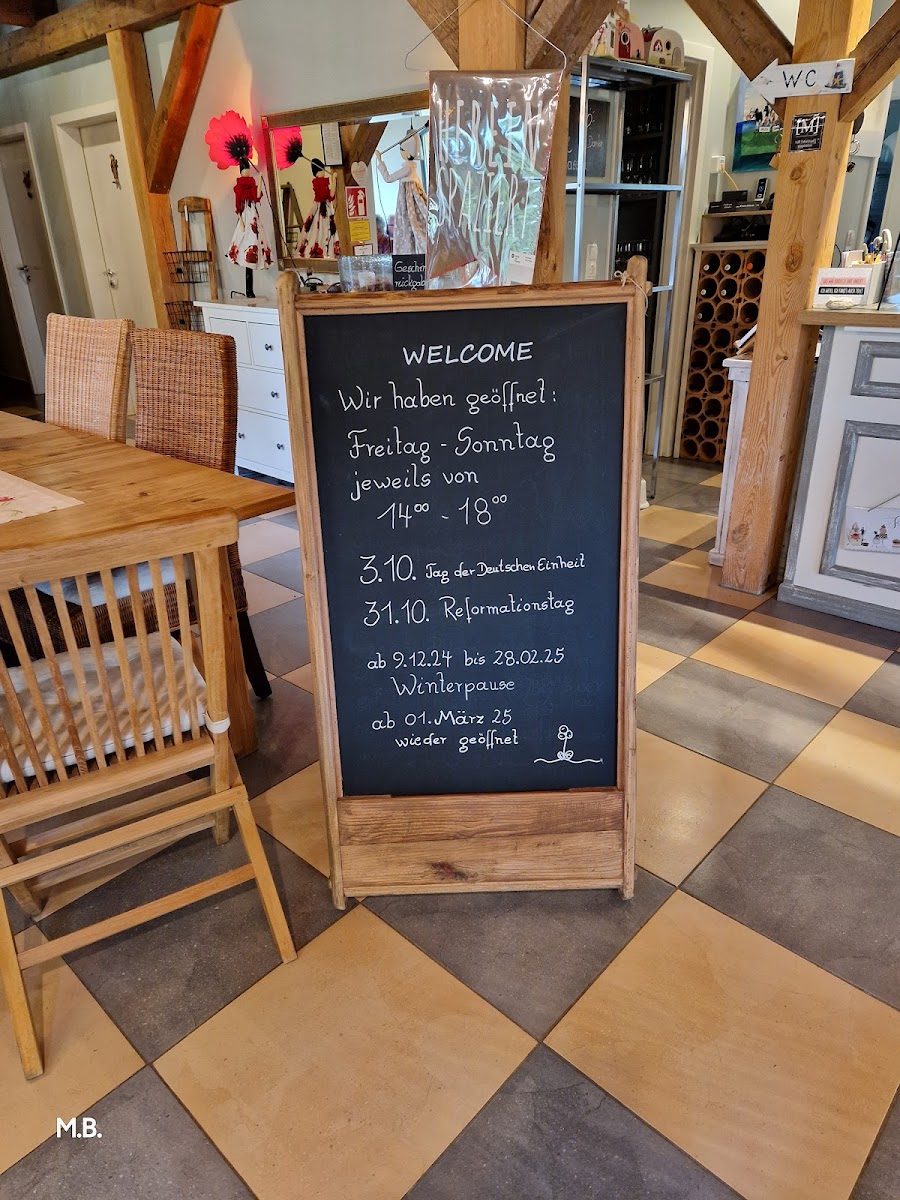 WC
WELCOME
Wir haben geöffnet:
Freitag - Sonntag
jeweils von
14⁰⁰ - 18⁰⁰
3.10. Tag der Deutschen Einheit
31.10. Reformationstag
ab 9.12.24 bis 28.02.25
Winterpause
ab 01. März 25
wieder geöffnet
M.B.